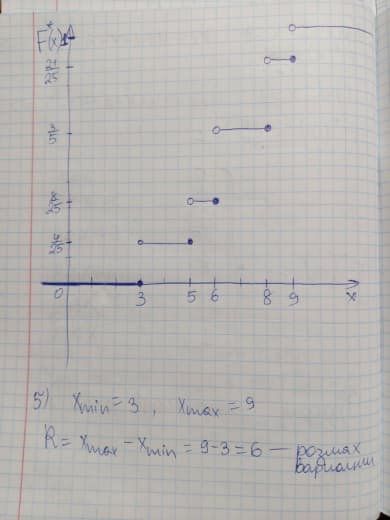 F*(x)
1
21/25
3/5
8/25
4/25
0 3 5 6 8 9 x
5) x_min = 3 , x_max = 9
R = x_max - x_min = 9-3 = 6 — розмах